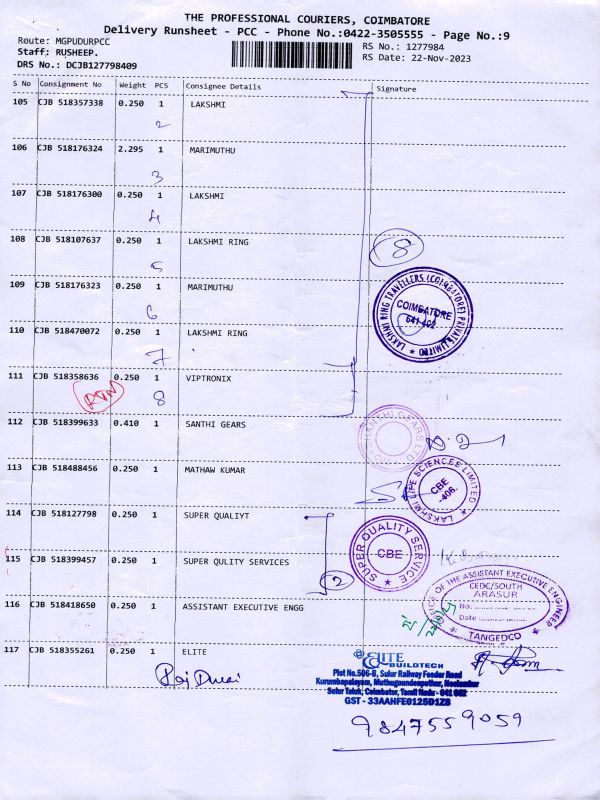 THE PROFESSIONAL COURIERS, COIMBATORE
Delivery Runsheet - PCC - Phone No.:0422-3505555 - Page No.:9
Route: MGPUDURPCC
RS No.: 1277984
Staff: RUSHEEP.
RS Date: 22-Nov-2023
DRS No.: DCJB127798409
S No Consignment No Weight PCS Consignee Details Signature
105 CJB 518357338 0.250 1 LAKSHMI
2
106 CJB 518176324 2.295 1 MARIMUTHU
3
107 CJB 518176300 0.250 1 LAKSHMI
4
108 CJB 518107637 0.250 1 LAKSHMI RING
8
5
109 CJB 518176323 0.250 1 MARIMUTHU
6
LAKSHMI RING TRAVELLERS (COIMBATORE) PRIVATE LIMITED
COIMBATORE
641 402
110 CJB 518470072 0.250 1 LAKSHMI RING
7
111 CJB 518358636 0.250 1 VIPTRONIX
RTN
8
112 CJB 518399633 0.410 1 SANTHI GEARS
113 CJB 518488456 0.250 1 MATHAW KUMAR
LAKSHMI LIFE SCIENCES LIMITED
CBE
-406.
114 CJB 518127798 0.250 1 SUPER QUALIYT
SUPER QUALITY SERVICE
CBE
115 CJB 518399457 0.250 1 SUPER QULITY SERVICES
2
116 CJB 518418650 0.250 1 ASSISTANT EXECUTIVE ENGG
OFFICE OF THE ASSISTANT EXECUTIVE ENGINEER
CEDC/SOUTH
ARASUR
No.
Date
TANGEDCO
117 CJB 518355261 0.250 1 ELITE
ELITE
BUILDTECH
Plot No.506-B, Sulur Railway Feeder Road
Kurumbapalayam, Muthugoundenputhur, Neelambur
Sulur Taluk, Coimbatore, Tamil Nadu - 641 062
GST - 33AAHFE0125D1Z8
9847559059